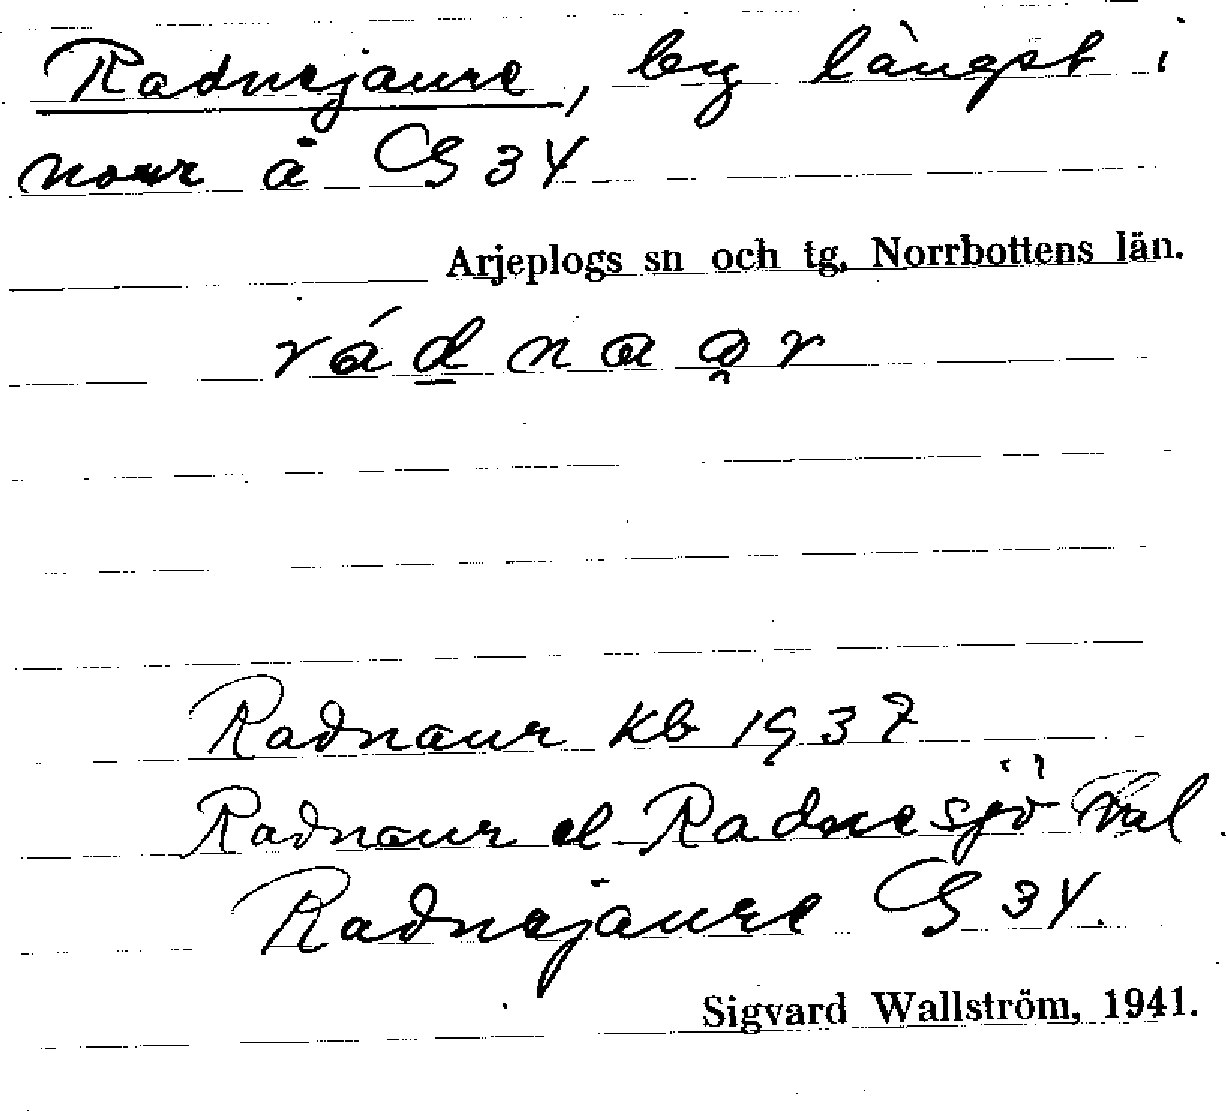 Radnejaure, by längst i
norr å GS 34
Arjeplogs sn och tg, Norrbottens län.
Radnaur kb 1937
Radnaur el Radnesjö
Radnejaure GS 34.
Sigvard Wallström, 1941.